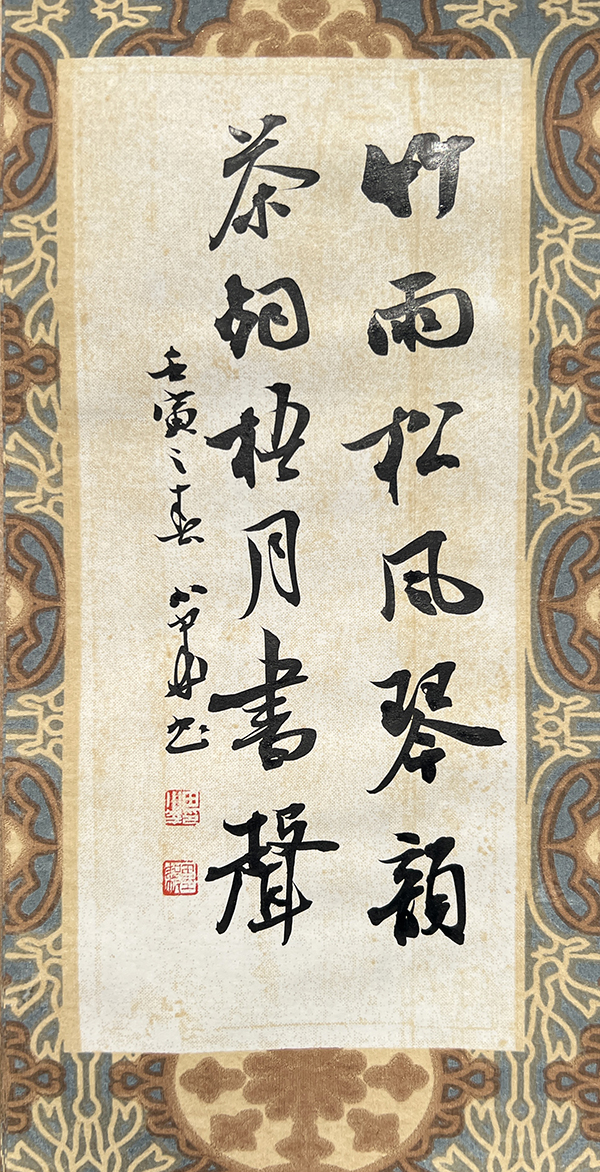 竹雨松風琴韻
茶烟梧月書聲
壬寅之春